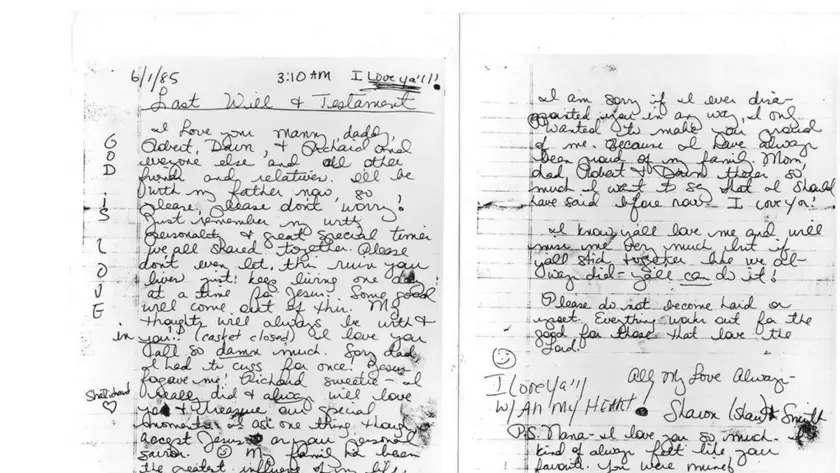 6/1/85 3:10 AM I Love ya'll!
Last Will & Testament
GOD iS LOVE
I Love you mommy, daddy,
Robert, Dawn, & Richard and
everyone else and all other
friends and relatives. I'll be
with my father now, so
please, please don't worry!
Just remember my witty
personality & great special times
we all shared together. Please
don't ever let this ruin your
lives just keep living one day
at a time for Jesus. Some good
will come out of this. My
thoughts will always be with &
in you. (casket closed) I love you
all so damn much. Sorry dad,
I had to cuss for once! Jesus
forgave me. Richard sweetie - I
really did & always will love
you & treasure our special
moments. I ask one thing though,
accept Jesus as your personal
savior. My family has been
the greatest influence of my life.
I am sorry if I ever disa-
ppointed you in any way, I only
wanted to make you proud
of me. Because I have always
been proud of my family. Mom,
dad, Robert & Dawn theres so
much I want to say that I should
have said before now. I love ya!
I know y'all love me and will
miss me very much but if
y'all stick together like we al-
ways did - y'all can do it!
Please do not become hard or
upset. Everything works out for the
good for those that love the
Lord.
All My Love Always -
I Love Ya'll
w/ All My Heart!
Sharon (Shari) Smith
P.S. Nana - I love you so much. I
kind of always felt like your
favorite. You were mine!